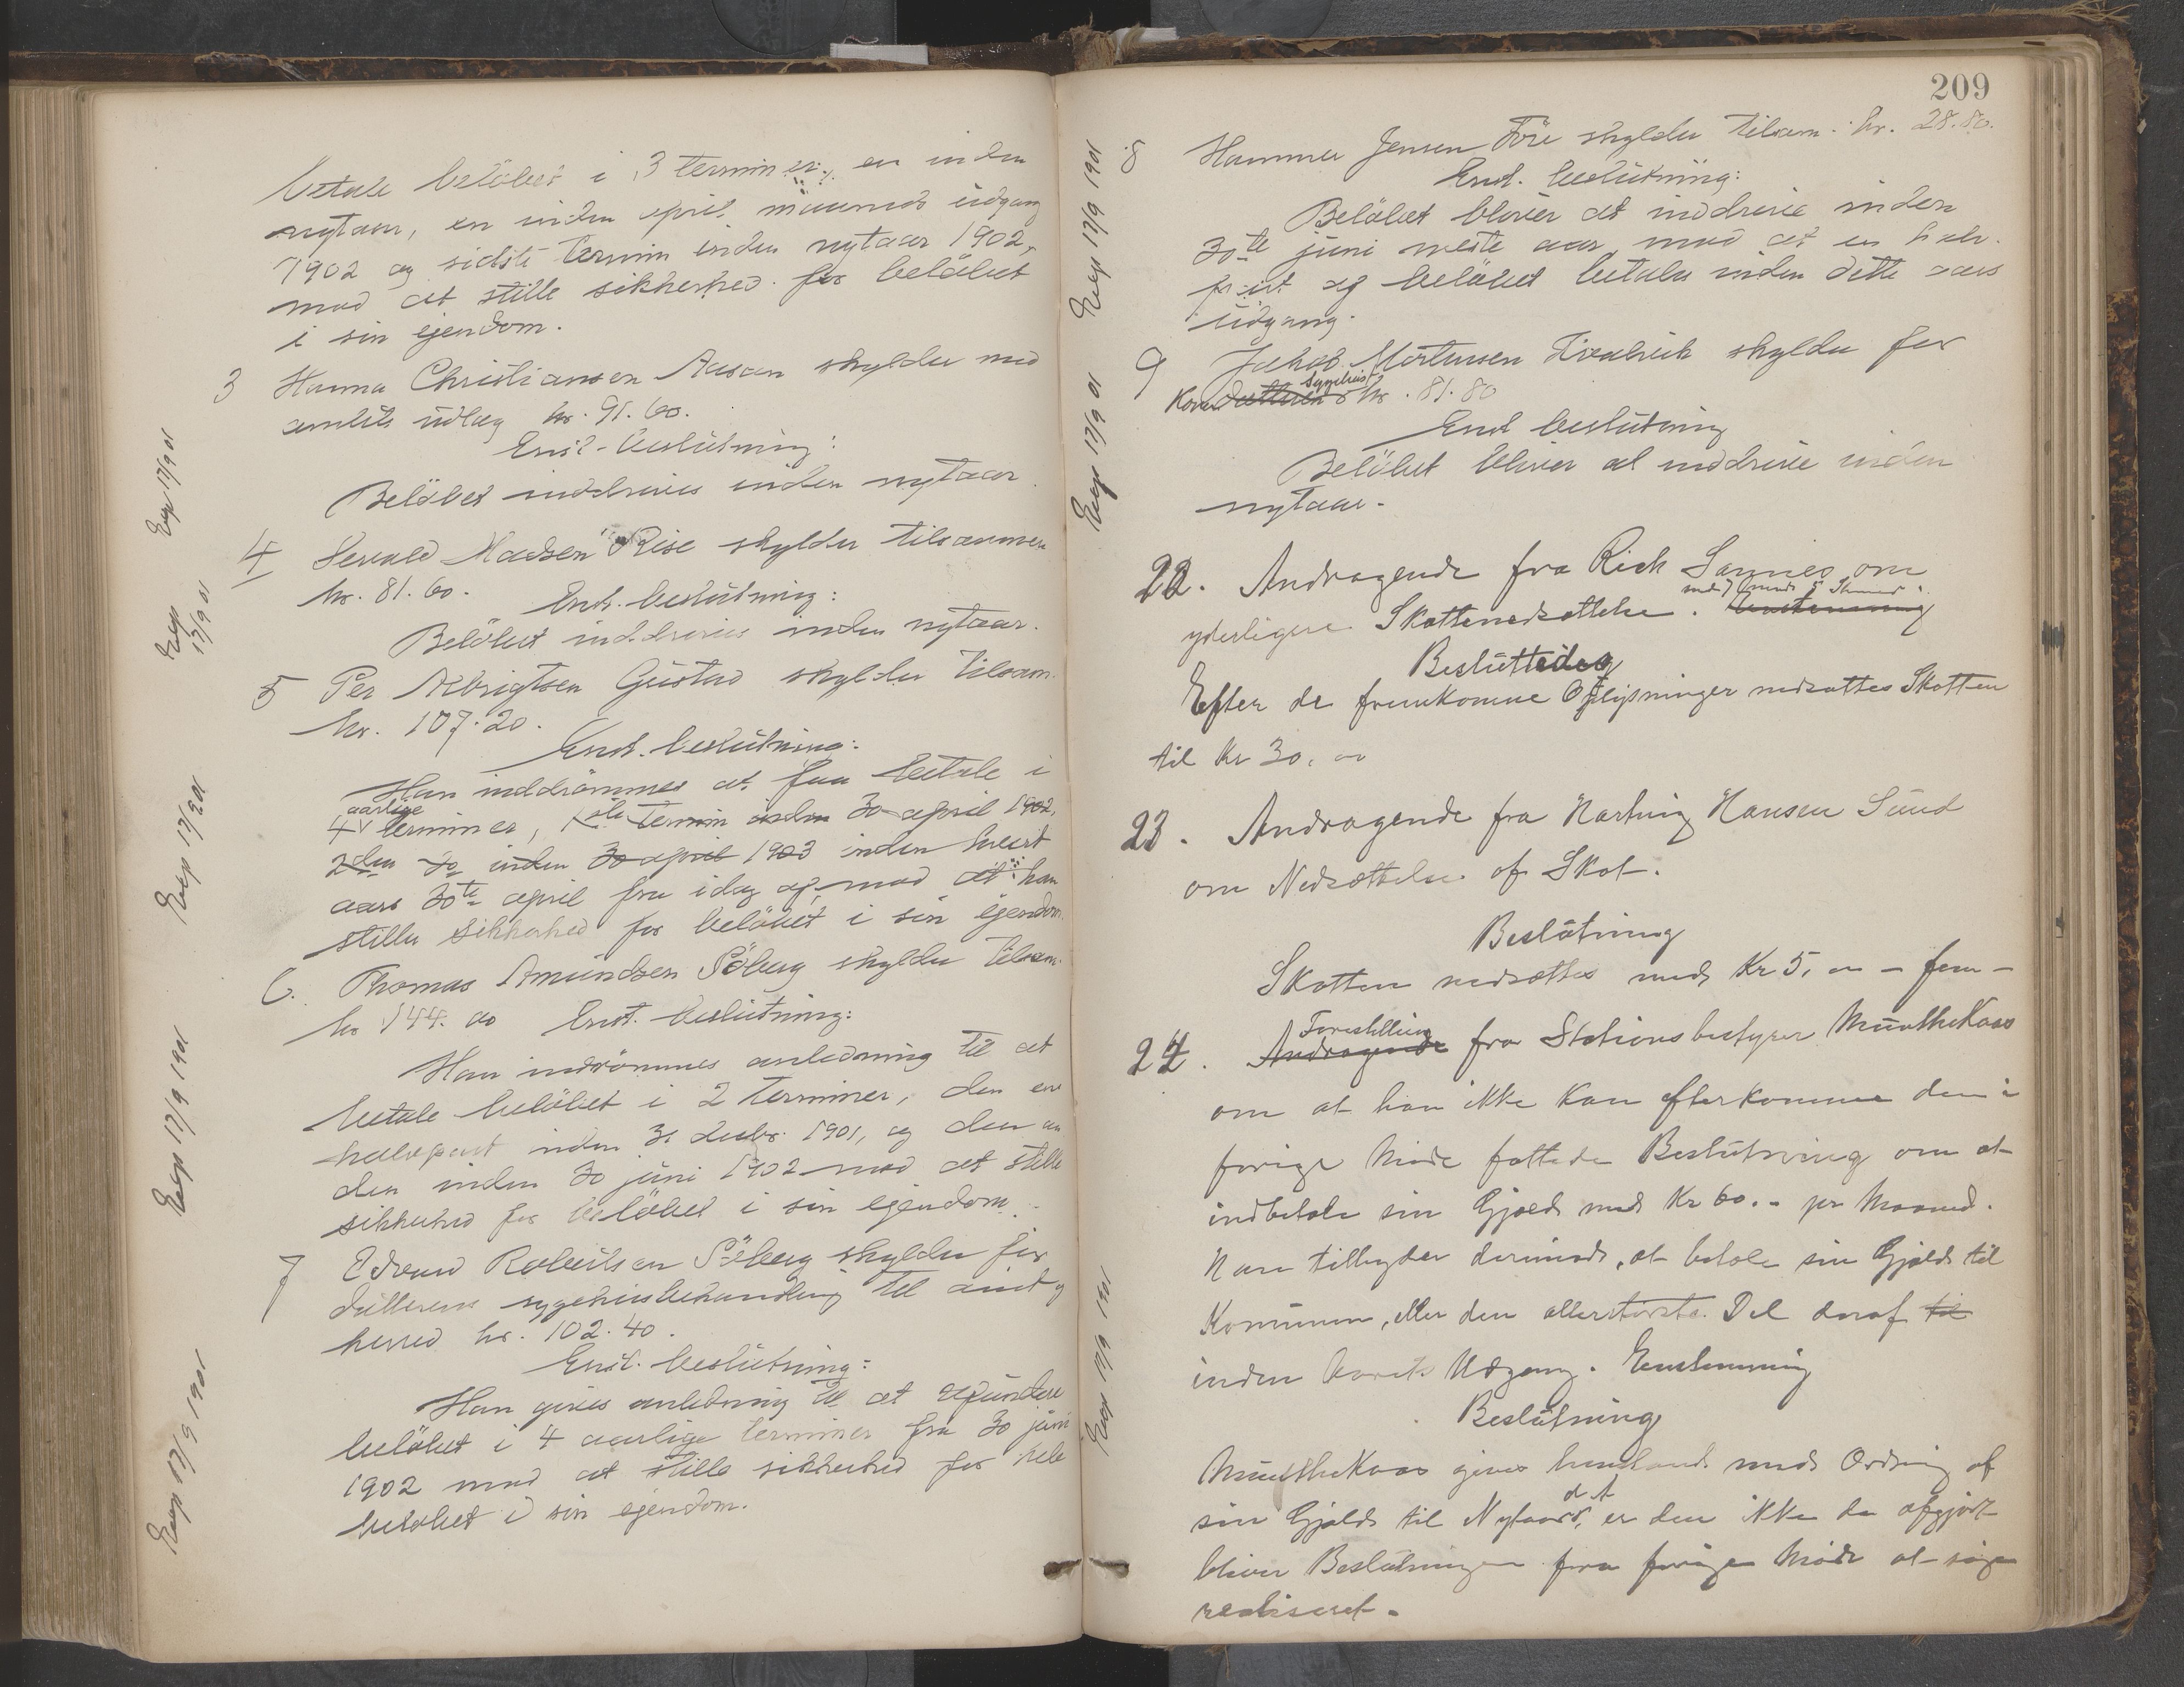 betale beløbet i 3 terminer, en inden
nytaar, en inden april maaneds udgang
1902 og sidste termin inden nytaar 1902,
mod at stille sikkerhed for beløbet
i sin ejendom.
3 Hanna Christiansen Aasan skylder med
amtets udlæg kr. 91.60.
Enst. beslutning:
Beløbet inddrives inden nytaar.
Exp 17/9 01
4 Sevald Madsen Rise skylder tilsammen
kr. 81.60. Enst. beslutning:
Beløbet inddrives inden nytaar.
Exp 17/9 01
5 Per Albrigtsen Gustad skylder tilsam.
kr. 107.20.
Enst. beslutning:
Han inddrømmes at faa betale i
4 aarlige terminer, 1ste termin inden 30 april 1902,
2den do inden 30 april 1903 inden hvert
aars 30te april fra idag af, mod at han
stiller sikkerhed for beløbet i sin ejendom.
Exp 17/9 01
6. Thomas Amundsen Søberg skylder tilsam.
kr 144.00 Enst. beslutning:
Han indrømmes anledning til at
betale beløbet i 2 terminer, den ene
halvpart inden 31 decbr. 1901, og den an
den inden 30 juni 1902 mod at stille
sikkerhed for beløbet i sin ejendom.
Exp 17/9 1901
7 Edvard Robertsen Søberg skylder for
datterens sygehusbehandling til amt og
herred kr. 102.40.
Enst. beslutning:
Han gives anledning til at refundere
beløbet i 4 aarlige terminer fra 30 juni
1902 mod at stille sikkerhed for hele
beløbet i sin ejendom.
Exp 17/9 1901
209
8 Hammer Jensen Føre skylder tilsam. kr. 28.80.
Enst. beslutning:
Beløbet bliver at inddrive inden
30te juni næste aar, mod at en halv-
part af beløbet betales inden dette aars
udgang.
Exp 17/9 1901
9 Jakob Mortensen skylder for
Konens Datteren Sygehus kr. 81.80
Enst beslutning
Beløbet bliver at inddrive inden
nytaar.
Exp 17/9 01
22. Andragende fra Rich Sannes om
yderligere Skattenedsættelse. Enstemmig
med 7 mod 5 Stemmer
Beslutning
Efter de fremkomne Oplysninger nedsættes Skatten
til Kr 30.00
23. Andragende fra Hartvig Hansen Sund
om Nedsættelse af Skat.
Beslutning
Skatten nedsættes med Kr 5,00 - fem -
24. Andragende Forestilling fra Stationsbestyrer MuntheKaas
om at han ikke kan efterkomme den i
forige Møde fattede Beslutning om at
indbetale sin Gjæld med Kr 60.- pr Maaned.
Han tilbyder derimod, at betale sin Gjæld til
Kommunen, eller den allerstørste Del deraf til
inden Aarets Udgang. Enstemmig
Beslutning
MuntheKaas gives henstand med Ordning af
sin Gjæld til Nytaar d. A, er den ikke da afgjort
bliver Beslutningen fra forige Møde at søge
realiseret.
Exp 17/9 1901